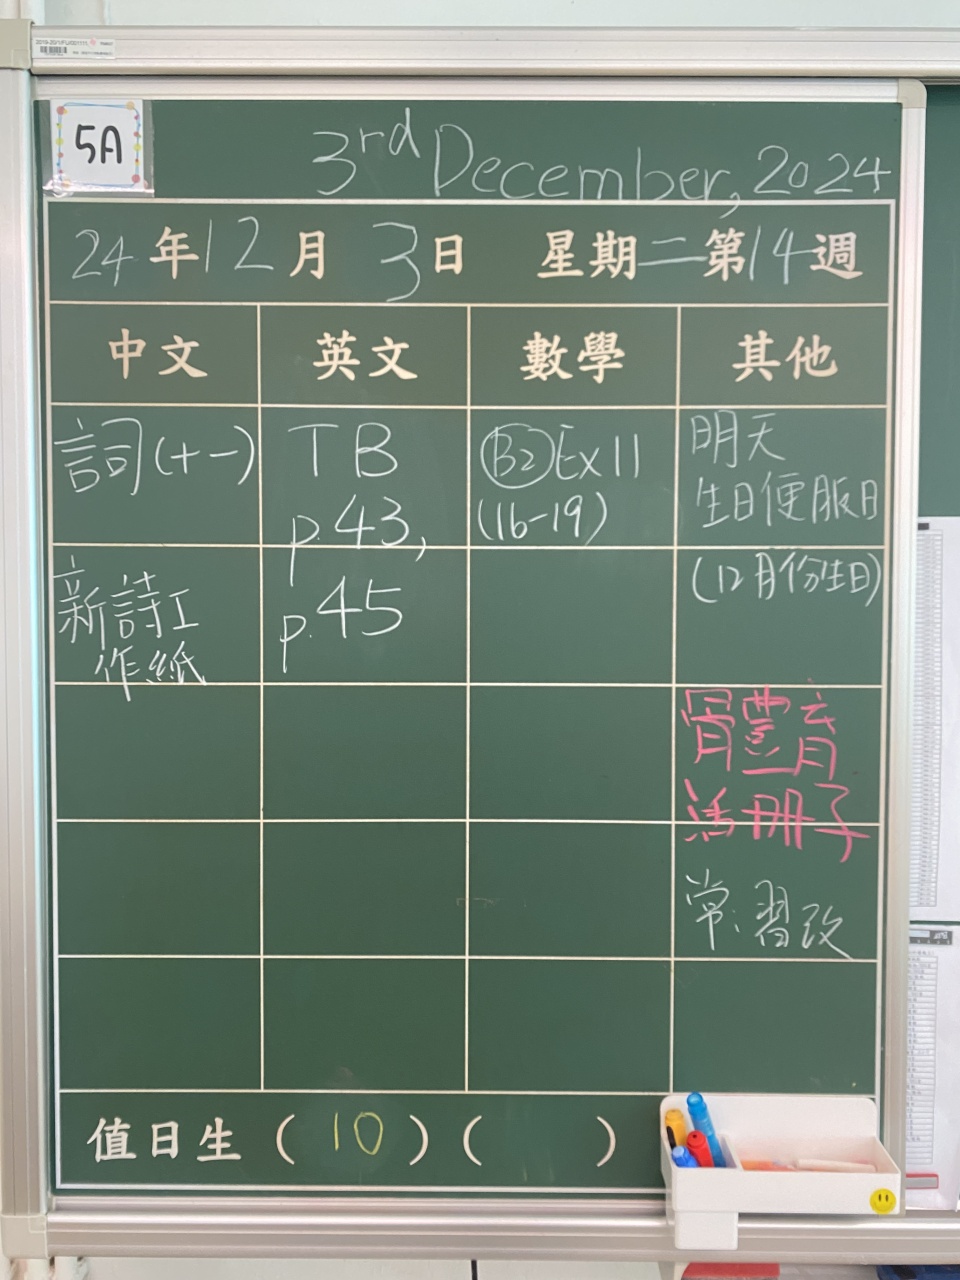 5A
3rd December, 2024
24年12月3日 星期二第14週
中文 英文 數學 其他
詞(十一)
新詩工
作紙
TB
p.43,
p.45
B2 Ex11
(16-19)
明天
生日便服日
(12月份生日)
體育
活冊子
常:習改
值日生(10)( )